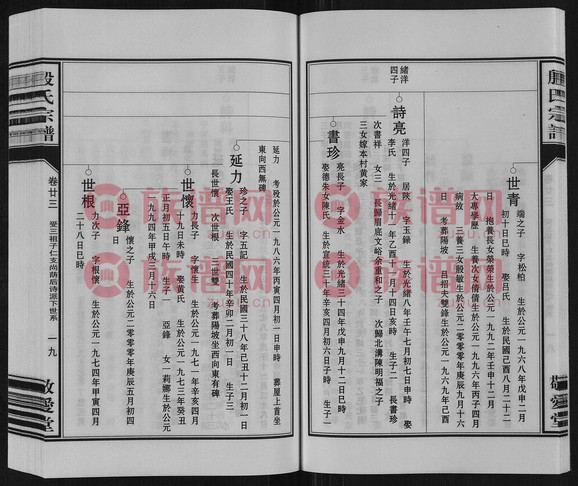 殷氏宗譜
敬愛堂
世青
端之子　字松柏　生於公元一九六八年戊申二月
初十日巳時　娶呂氏　生於民國己酉八月二十二
日　抱養長女榮榮生於公元一九九二年壬申十二月
大專學歷　生養次女倩倩生於公元一九九六年丙子四月
病故　三養三女殷敏生於公元二零零零年庚辰九月十六
日　考葬陽坡　呂招夫雙鋒生於公元一九六九年己酉
緒洋
四子
詩亮
洋四子　居陝　字玉録　生於光緒八年壬午七月初七日申時　娶
李氏　生於光緒十一年乙酉十一月十四日亥時　生子二　長書珍
次書祥　女三　長歸眉底文崤余重和之子　次歸北溝陳明福之子
三女嫁本村黄家
書珍
亮長子　字金水　生於光緒三十四年戊申九月十二日巳時
娶德朱女陳氏　生於宣統三十年辛亥四月初六日子時　生子一
延力　考殁於公元一九八六年丙寅四月初一日申時　葬屋上首坐
東向西無碑
延力
珍之子　字五記　生於民國三十八年己丑十二月初一日
娶王氏　生於民國四十年辛卯二月初一日　生子三
長世懷　次世根　三世雙　考葬陽坡坐西向東有碑
世懷
力長子　字懷生　生於公元一九七三年癸丑
十月十九日未時　娶黄氏　生於公元一九七二年
正月初五日午時　生子一　亞鋒　女一莉娜生於公元
一九九四年甲戌三月十六日
亞鋒
懷之子　生於公元二零零零年庚辰五月初四
日
世根
力次子　字根懷　生於公元一九七四年甲寅四月
二十八日巳時
殷氏宗譜
卷廿三
受三祖子仁支尚荫后诗派下世系
一九
敬愛堂